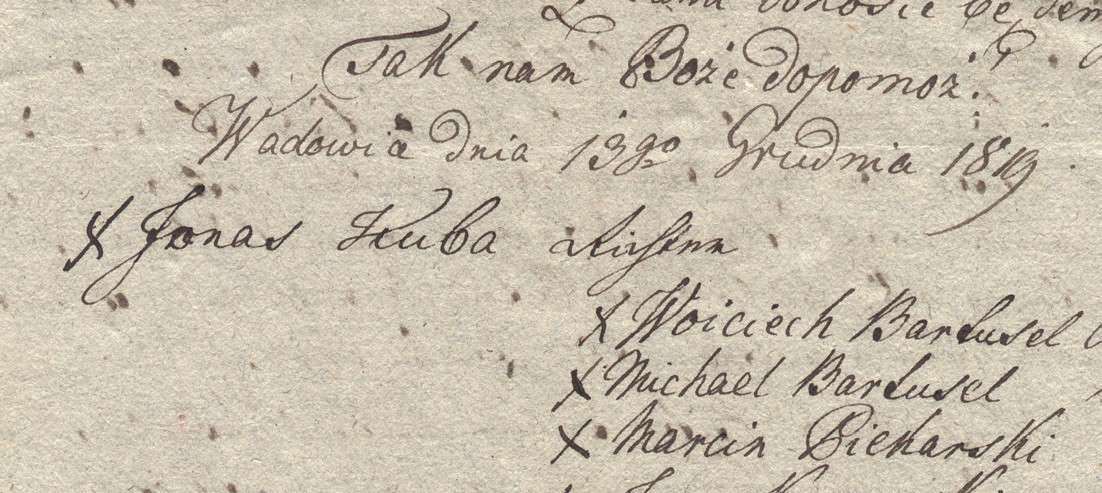 donosić będziem
Tak nam Boże dopomoż.
Wadowic dnia 13go Grudnia 1819
x Jonas Kuba Richter
x Woiciech Bartusel
x Michael Bartusel
x Marcin Piekarski